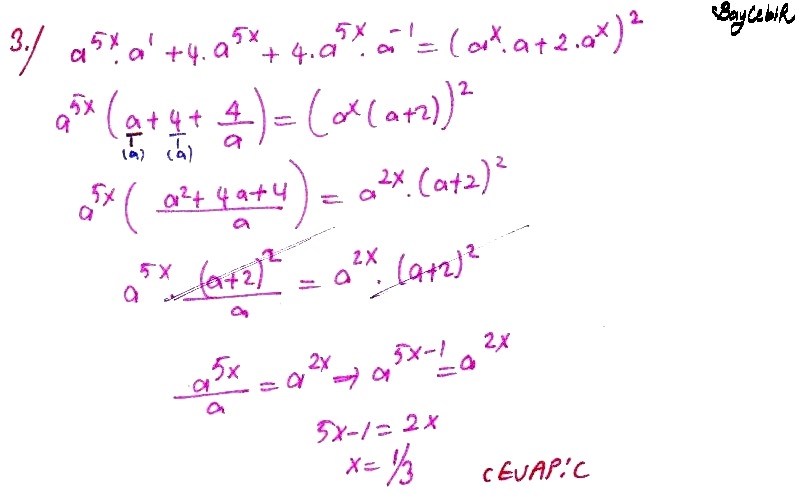 BayCebiR
3./ a^5x . a^1 + 4. a^5x + 4. a^5x . a^-1 = (a^x . a + 2. a^x)^2
a^5x (a + 4 + 4/a) = (a^x (a+2))^2
(a) (a)
a^5x ( (a^2 + 4a + 4)/a ) = a^2x . (a+2)^2
a^5x . (a+2)^2/a = a^2x . (a+2)^2
a^5x/a = a^2x → a^5x-1 = a^2x
5x-1 = 2x
x = 1/3
CEVAP: C